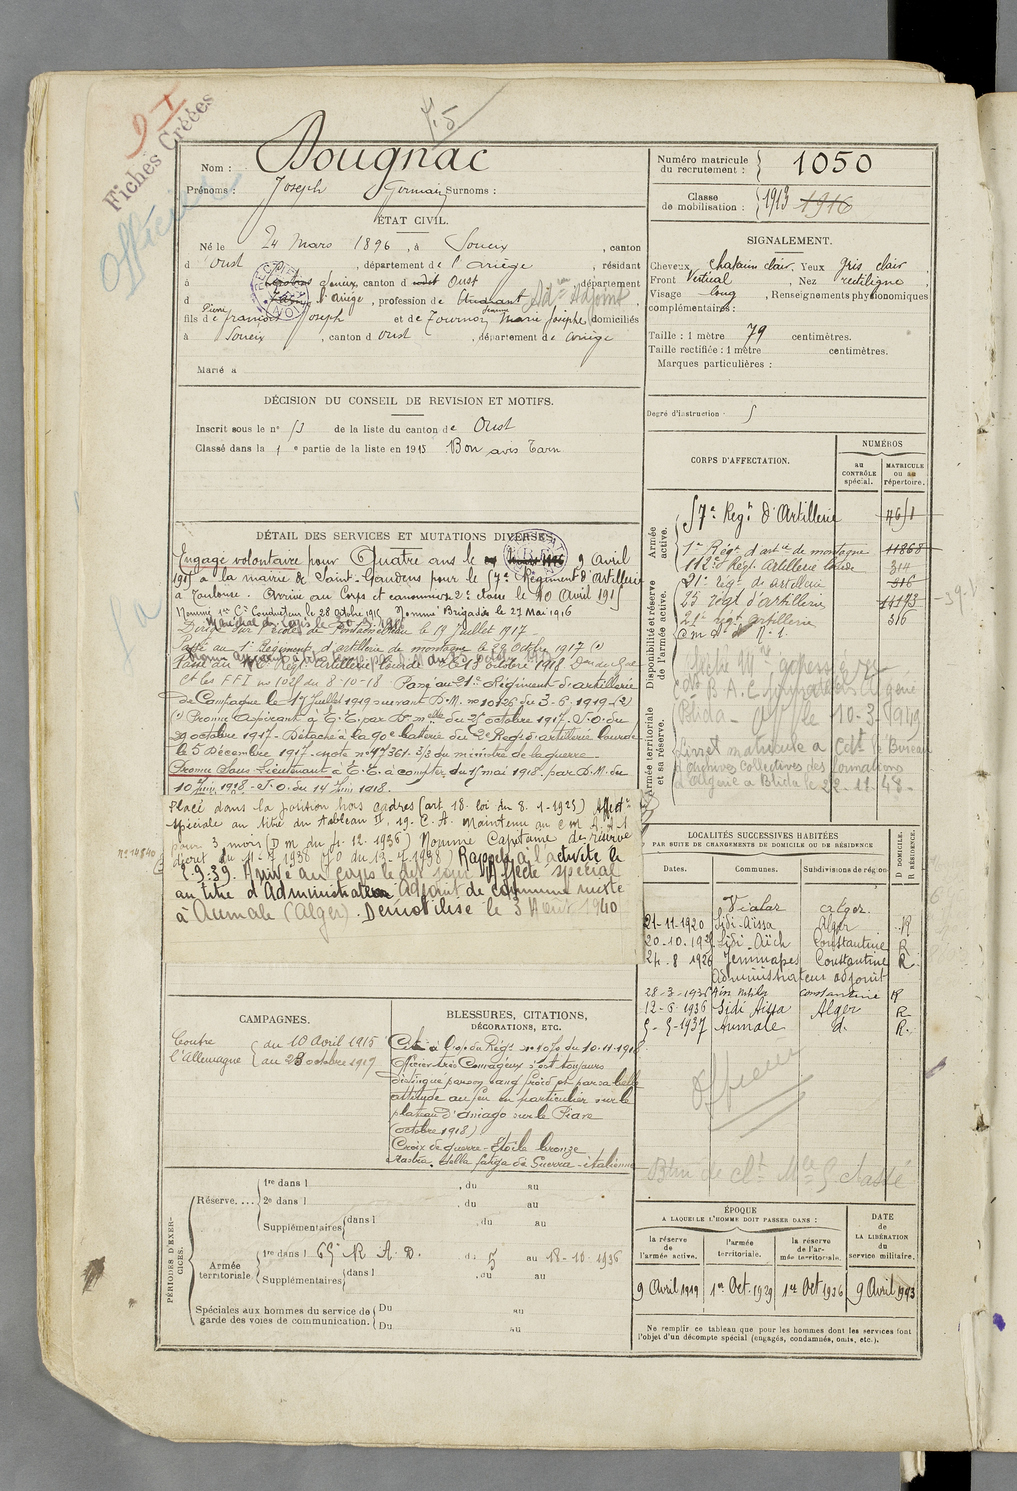 Fichés Créées
Officier
75
Nom : Dougnac
Prénoms : Joseph Germain Surnoms :
Numéro matricule du recrutement : 1050
Classe de mobilisation : 1913 1916
ÉTAT CIVIL.
Né le 24 Mars 1896, à Soueix, canton
d'Oust, département de l'Ariège, résidant
à Soueix, canton d Oust, département
d l'Ariège, profession de Etudiant Adjoint
fils de François Joseph et de Tournon Marie Josèphe domiciliés
à Soueix, canton d Oust, département de Ariège
Marié à
SIGNALEMENT.
Cheveux chatain clair. Yeux gris clair
Front Vertical, Nez rectiligne,
Visage long, Renseignements physionomiques
complémentaires :
Taille : 1 mètre 79 centimètres.
Taille rectifiée : 1 mètre centimètres.
Marques particulières :
Degré d'instruction
DÉCISION DU CONSEIL DE REVISION ET MOTIFS.
Inscrit sous le n° 53 de la liste du canton de Oust
Classé dans la 1e partie de la liste en 1915 Bon avis Tarn
CORPS D'AFFECTATION.
NUMÉROS
au CONTRÔLE spécial.
MATRICULE ou au répertoire.
Armée active.
Disponibilité et réserve de l'armée active.
Armée territoriale et sa réserve.
57e Regt d'Artillerie
1er Régt d'artie de montagne 11868
112e Regt Artillerie lourde 314
21e regt de artillerie 316
25 regt d'artillerie 11173
21e regt artillerie 316
Blida - le 10-3-1949
Livret matricule a Cdt le Bureau
d'archives collectives des formations
d'Algérie à Blida le 22-11-48-
DÉTAIL DES SERVICES ET MUTATIONS DIVERSES.
Engagé volontaire pour Quatre ans le 9 avril
1915 à la mairie de Saint-Gaudens pour le 57e Régiment d'Artillerie
à Toulouse. Arrivé au Corps et canonnier 2e classe le 10 Avril 1915
Nommé 1er Ct Conducteur le 28 octobre 1915 Nommé Brigadier le 27 Mai 1916
Dirigé sur l'école de Fontainebleau le 19 Juillet 1917
Passé au 1er Régiment d'artillerie de montagne le 29 Octbre 1917 (1)
Passé au Régt Artillerie Lourde le 13 octobre 1918
et les FFI no du 8-10-18 Passé au 21e Régiment d'artillerie
de Campagne le 17 Juillet 1919 suivant D.M. no 10126 du 3-6-1919 (2)
(1) Promu aspirant à T.T. par Dn mlle du 25 octobre 1917. J.O. du
29 octobre 1917 - Détaché à la 90e batterie du 2e Régt d'artillerie lourde
le 5 Décembre 1917. note no 47361. 3/3 du ministre de la guerre
Promu Sous Lieutenant à T.T. à compter du 15 mai 1918. par D.M. du
10 Juin 1918 - J.O. du 14 Juin 1918.
Placé dans la position hors cadres (art 18. loi du 8-1-1925) Affecté
spéciale au titre du tableau II. 19e C.A. Maintenu au
pour 3 mois (D m du 4. 12. 1936) Nommé Capitaine de réserve
décret du 11-7 1938 (J O du 13-7 1938) Rappelé à l'activité le
2.9.39. Arrivé au corps le dit jour. Affecté spécial
au titre d'Administrateur Adjoint de commune mixte
à Aumale (Alger). Démobilisé le 3 Aout 1940
LOCALITÉS SUCCESSIVES HABITÉES
PAR SUITE DE CHANGEMENTS DE DOMICILE OU DE RÉSIDENCE
Dates. Communes. Subdivisions de région
D DOMICILE. R RÉSIDENCE.
Vialar Alger.
21-11-1920 Sidi-Aïssa Alger R
20-10-192 Sidi Aïch Constantine R
24-8 1926 Jemmapes Constantine R.
Administrateur adjoint
28-3-193 Constantine R
12-6 1936 Sidi Aissa Alger R
5-5-1937 Aumale d. R.
Officier
CAMPAGNES.
Contre l'Allemagne du 10 Avril 1915
au 23 octobre 1919
BLESSURES, CITATIONS,
DÉCORATIONS, ETC.
Cité à l'o. du Régt no 1050 du 10-11-1918
Officier très Courageux s'est toujours
distingué par son sang froid et par sa belle
attitude au feu en particulier sur le
plateau d'Asiago sur le Piave
(octobre 1918)
Croix de guerre - Etoile bronze
della fatiga de Guerra - italienne
PÉRIODES D'EXERCICES.
Réserve.... 1re dans l , du au
2e dans l , du au
Supplémentaires dans l , du au
Armée territoriale. 1re dans l 65e R. A. D. du 5 au 18-10-1936
Supplémentaires dans l , du au
Spéciales aux hommes du service de garde des voies de communication. Du au
Du au
ÉPOQUE
A LAQUELLE L'HOMME DOIT PASSER DANS :
DATE de LA LIBÉRATION du service militaire.
la réserve de l'armée active.
l'armée territoriale.
la réserve de l'armée territoriale.
9 Avril 1919 1er Oct. 1929 1er Oct 1936 9 Avril 1943
Ne remplir ce tableau que pour les hommes dont les services font
l'objet d'un décompte spécial (engagés, condamnés, omis, etc.).